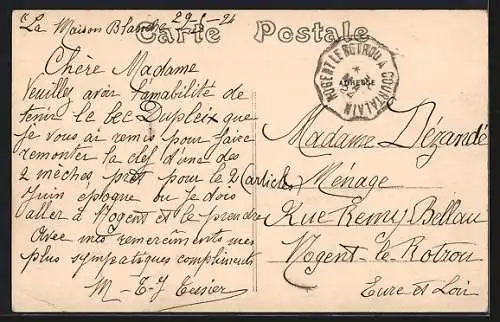 La Maison Blanche 29-5-24
Carte Postale
NOGENT LE ROTROU A COURTALAIN
ADRESSE
Chère Madame
Veuillez avoir l'amabilité de
tenir le bec Dupleix que
je vous ai remis pour faire
remonter la clef d'une des
2 mèches prêt pour le 2
Juin époque ou je dois
aller à Nogent et le prendre
Avec mes remerciments mes
plus sympatiques compliments
M-E-J Tessier
Madame Dézandé
(articles) Ménage
Rue Remy Bellau
Nogent-le-Rotrou
Eure et Loir